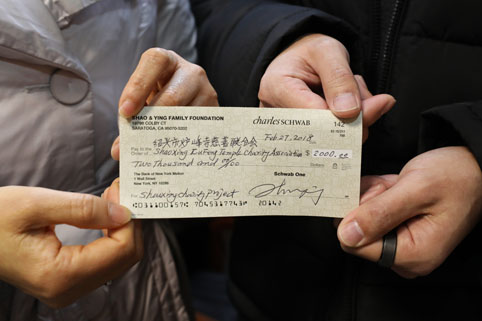 SHAO & YING FAMILY FOUNDATION
SARATOGA, CA 95070-5202
charles SCHWAB
142
Feb 27, 2018
Pay to the
Order of
绍兴市炉峰寺慈善联合会
Shaoxing LuFeng Temple Charity Association $ 2000.00
Two thousand and
Dollars
The Bank of New York Mellon
1 Wall Street
New York, NY 10286
Schwab One
Shaoxing charity Project